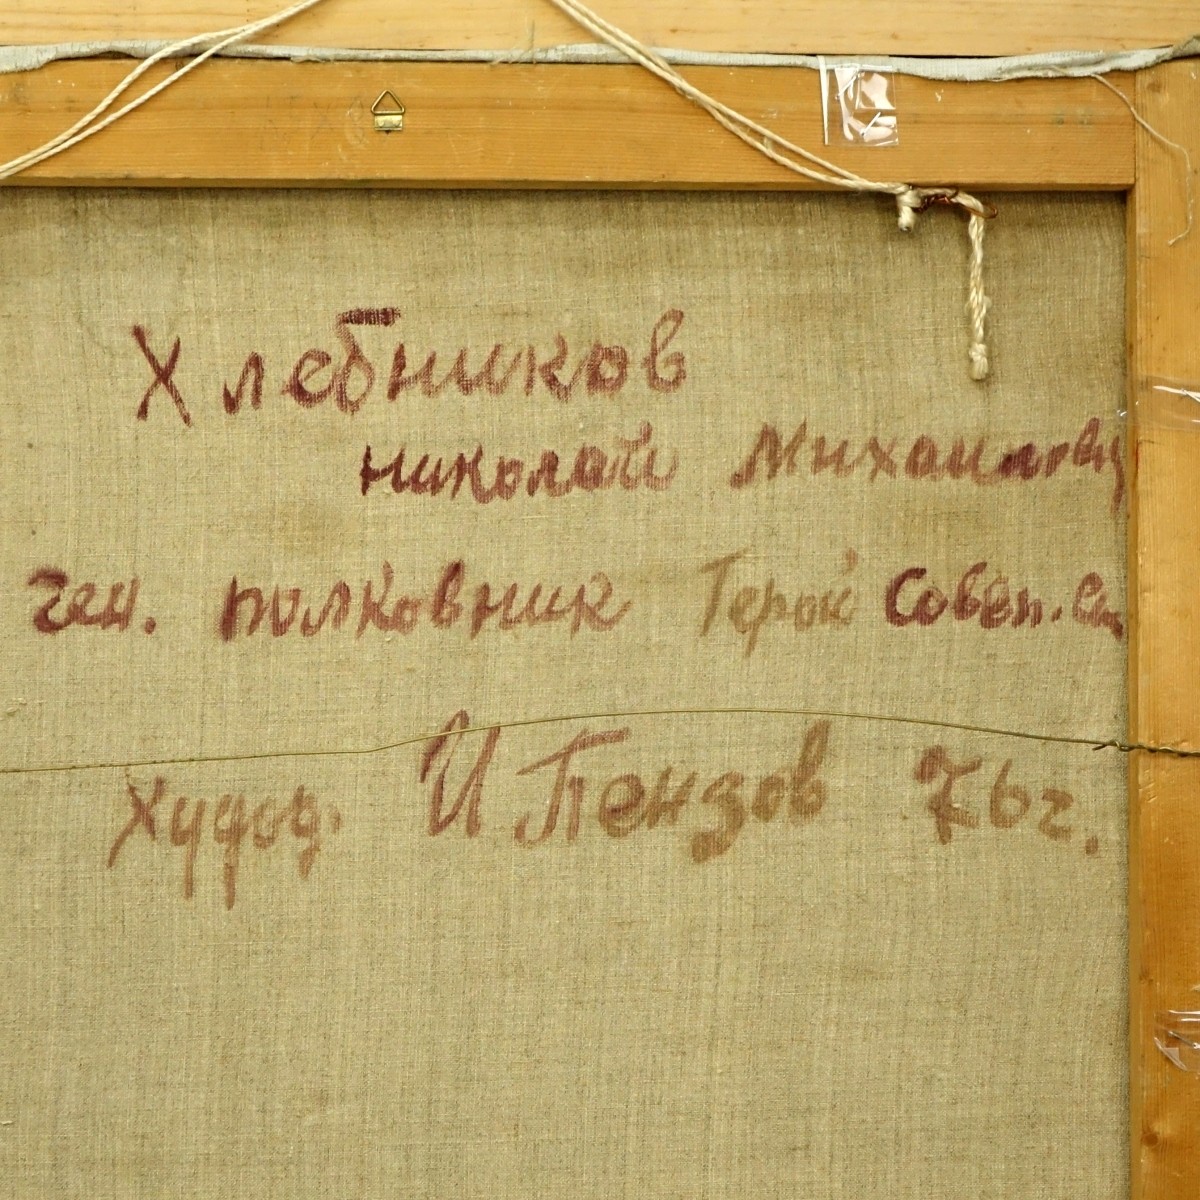 Хлебников
Николай Михайлович
ген. полковник Герой Совет. Со
Худож. И Пензов 76 г.